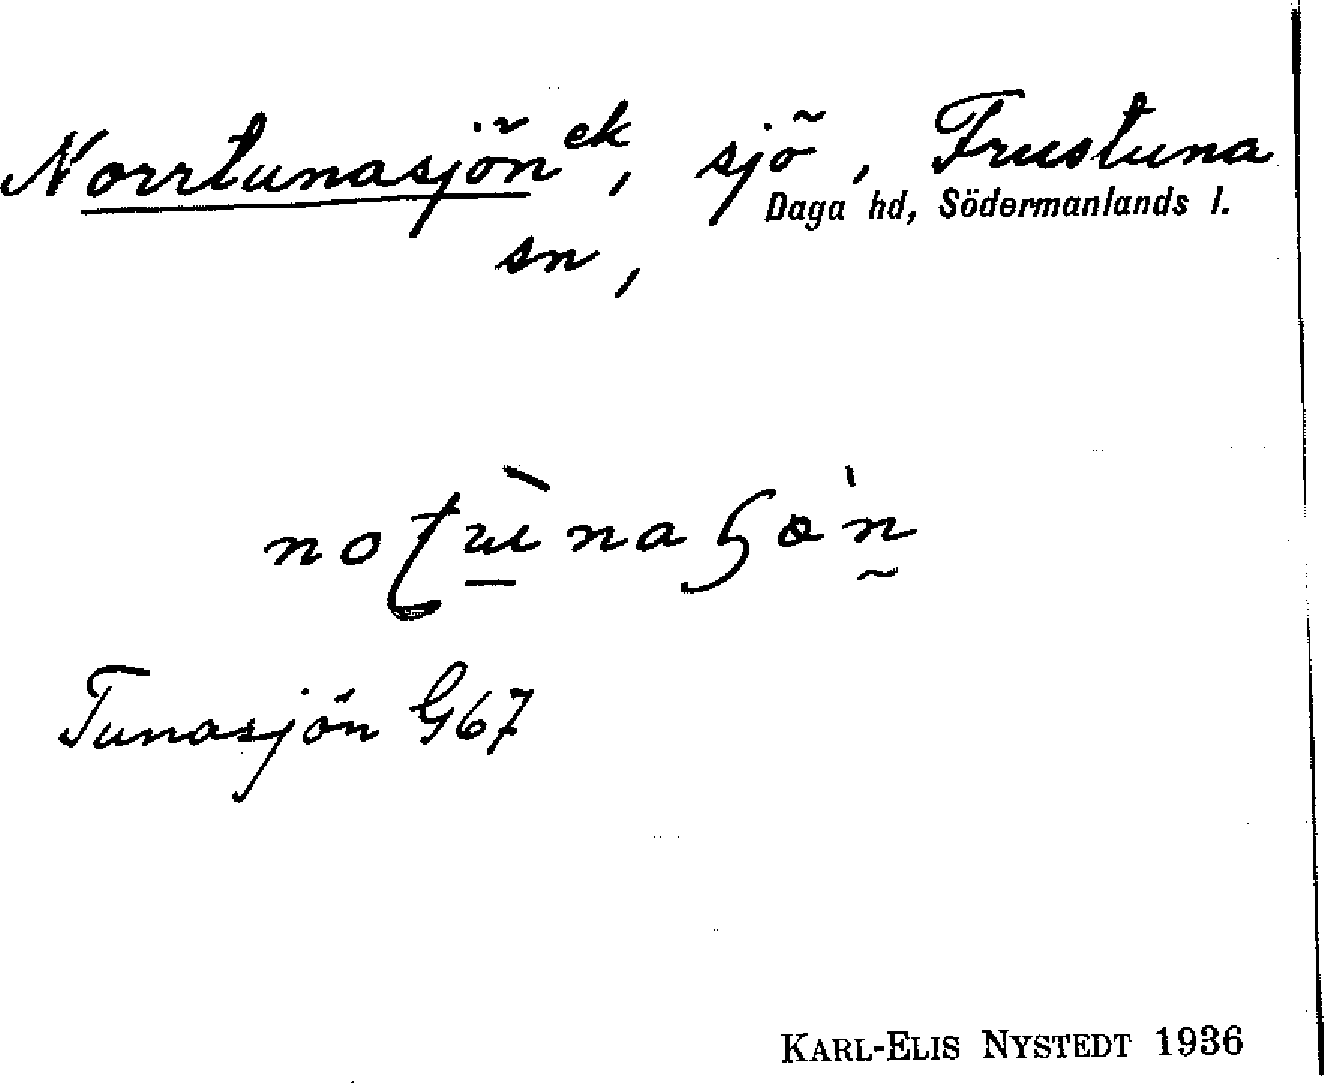 Norrtunasjön ek, sjö, Frustuna
Daga hd, Södermanlands l.
sn,
Tunasjön G67
KARL-ELIS NYSTEDT 1936